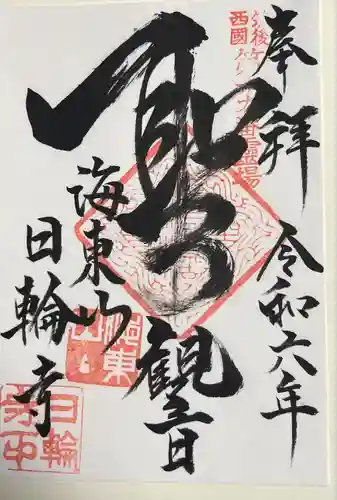 奉拝
令和六年
聖観音
海東山
日輪寺
西國
海東
日輪